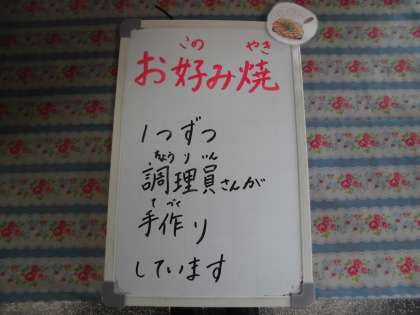 この　やき
お好み焼
1つずつ
ちょうりいん
調理員さんが
てづく
手作り
しています